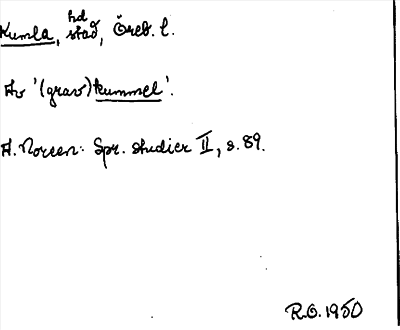 Kumla, hd stad, Öreb. l.
Av '(grav)kummel'.
A. Noreen: Spr. studier II, s. 89.
R.O. 1950